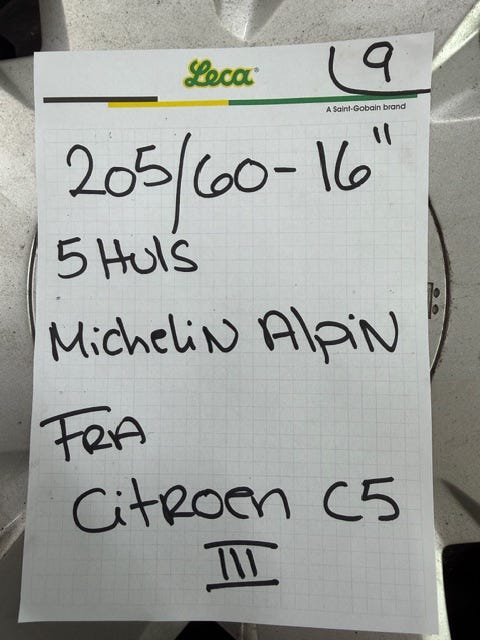 Leca®
9
A Saint-Gobain brand
205/60-16"
5 HULS
MicheliN AlpiN
FRA
CitROen C5
III